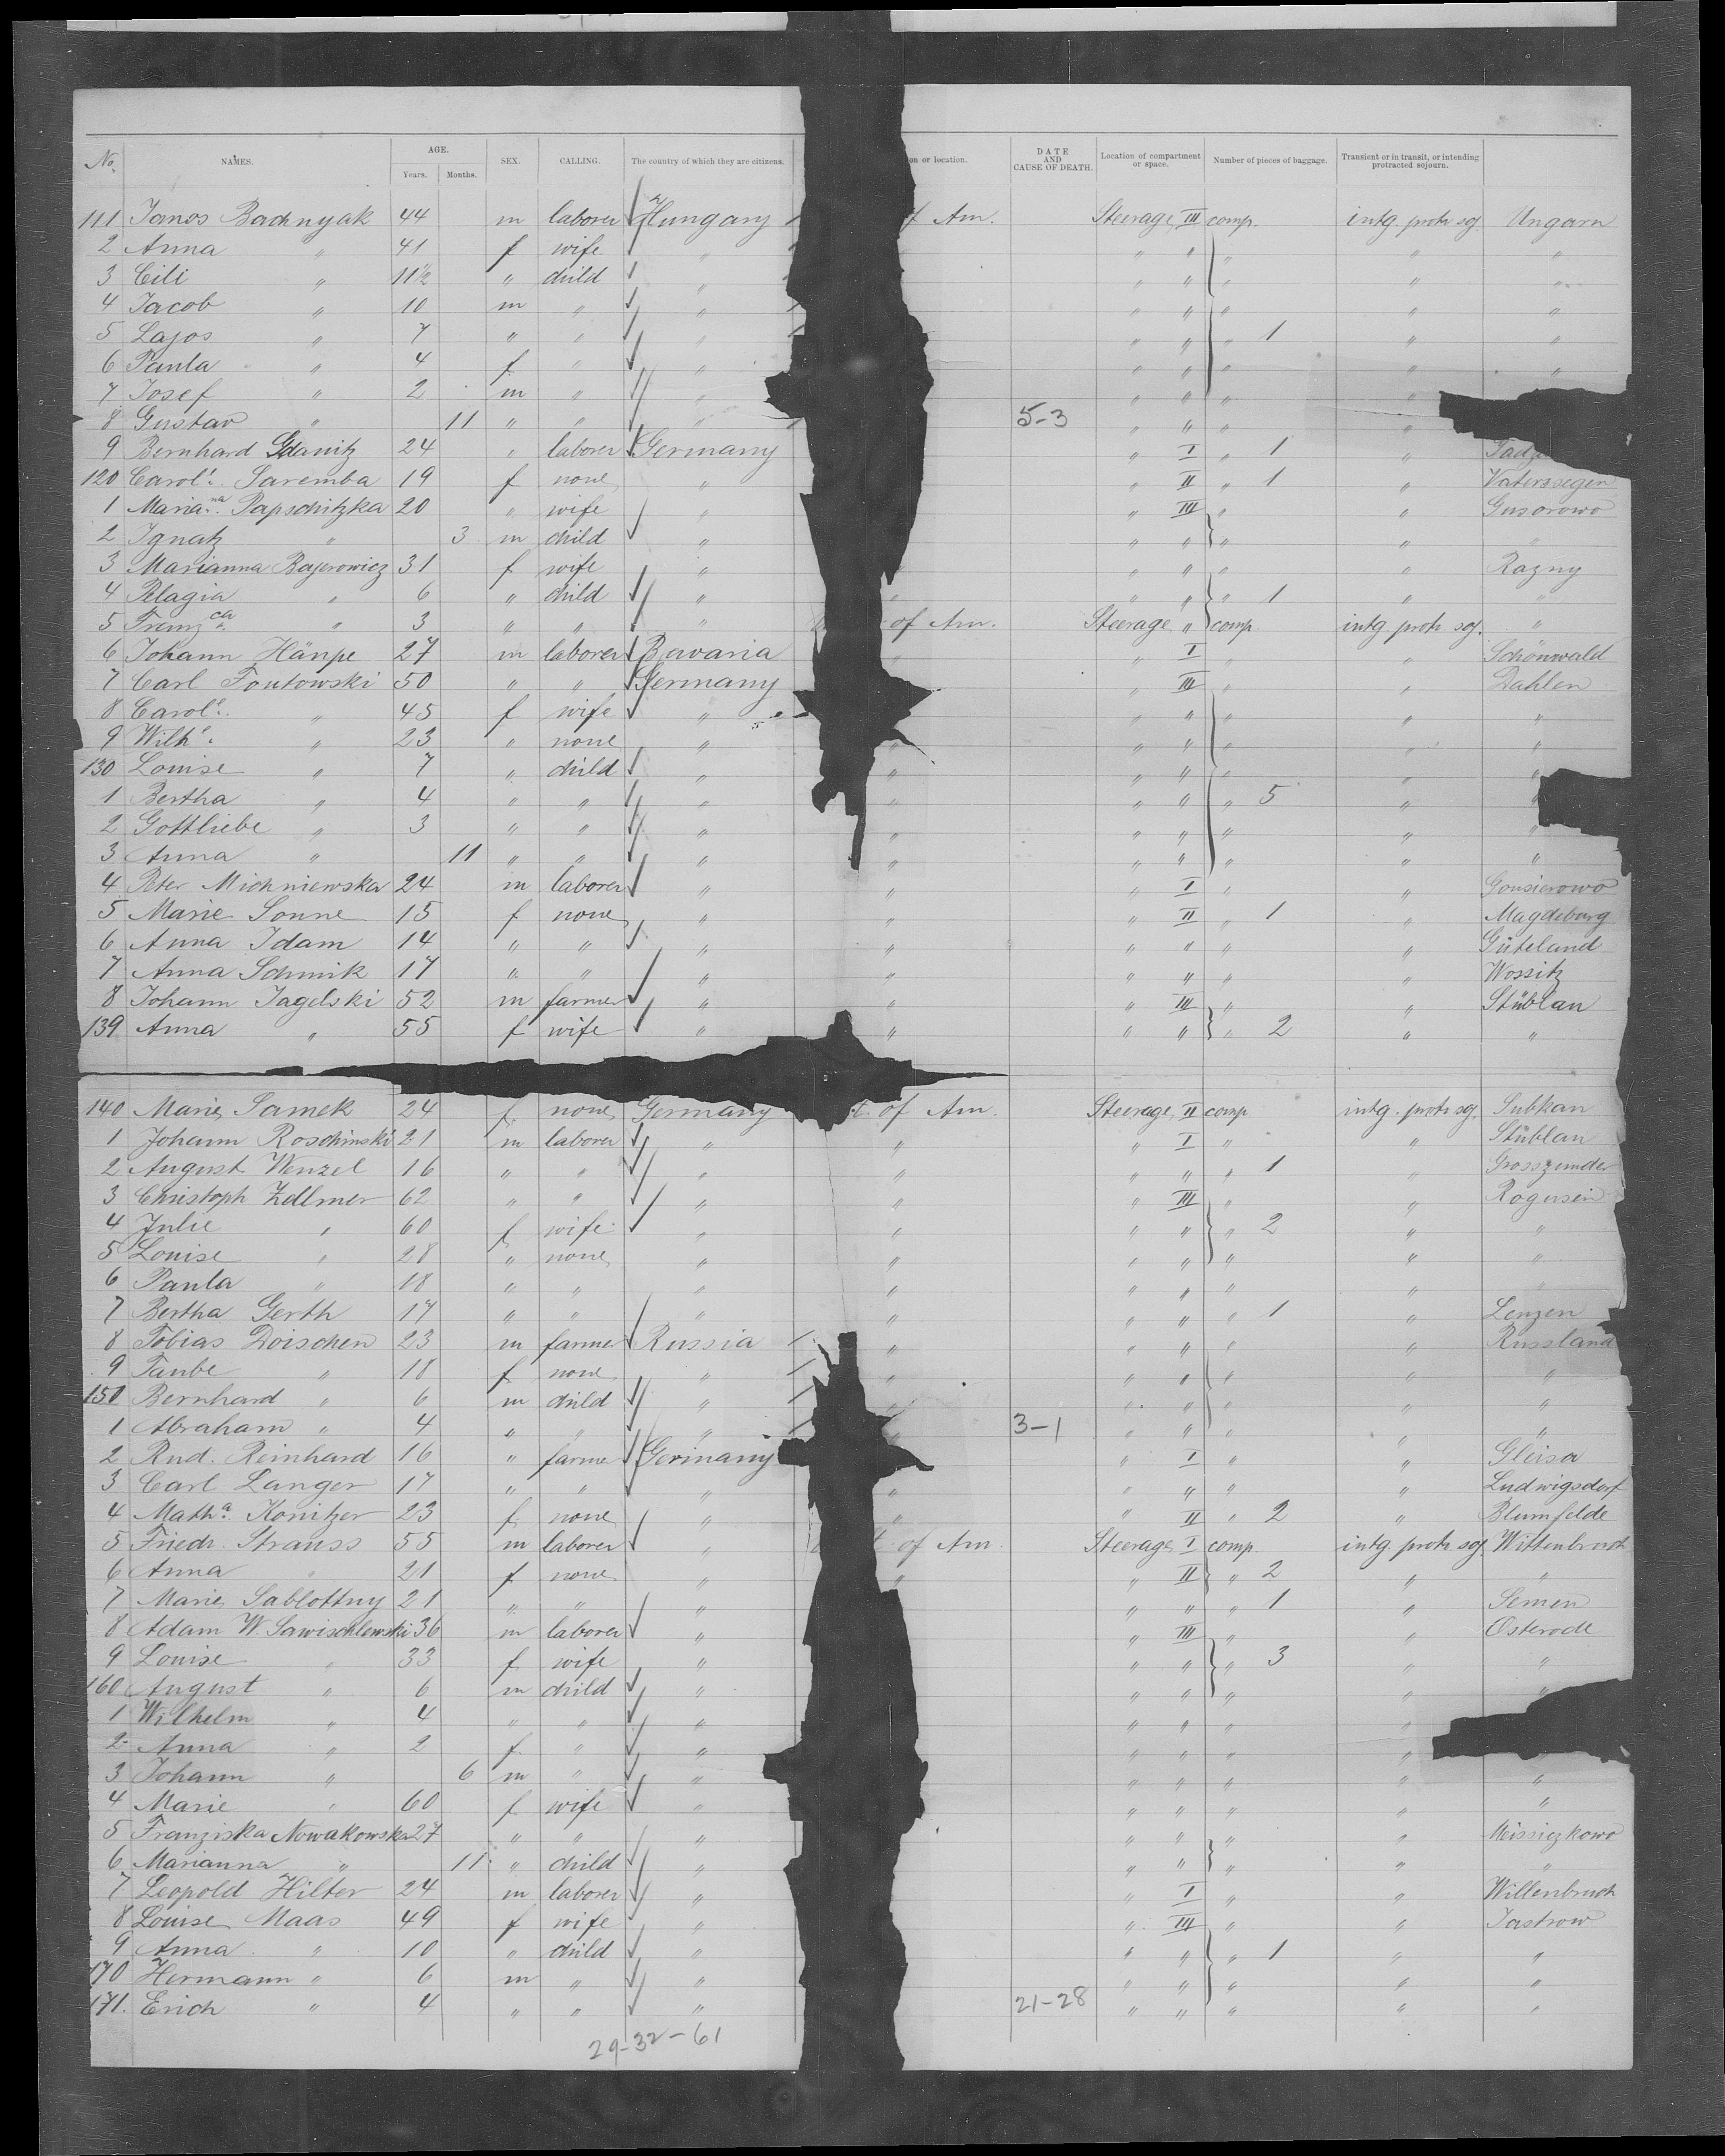 No. NAMES. AGE. Years. Months. SEX. CALLING. The country of which they are citizens. on or location. DATE AND CAUSE OF DEATH. Location of compartment or space. Number of pieces of baggage. Transient or in transit, or intending protracted sojourn.
111 Janos Badnyak 44 m laborer Hungary Am. Steerage III comp. intg. protr soj. Ungarn
2 Anna " 41 f wife " " " " " "
3 Cili " 11½ " child " " " " " "
4 Jacob " 10 m " " " " " " "
5 Lajos " 7 " " " " " " 1 " "
6 Paula " 4 f " " " " " " "
7 Josef " 2 m " " " " " "
8 Gustav " 11 " " " 5-3 " " " "
9 Bernhard Gdanitz 24 " laborer Germany " I " 1 "
120 Carol. Saremba 19 f none " " II " 1 " Vaterssegen
1 Marianna Papschitzka 20 " wife " " III " " Gusorowo
2 Ignatz " 3 m child " " " " " "
3 Marianna Bajerowicz 31 f wife " " " " " Razny
4 Pelagia " 6 " child " " " " " 1 " "
5 Franzca " 3 " " " of Am. Steerage " comp. intg protr soj. "
6 Johann Hänpe 27 m laborer Bavaria " " I " " Schönwald
7 Carl Toutowski 50 " " Germany " III " " Dahlen
8 Carol. " 45 f wife " " " " " "
9 Wilh. " 23 " none " " " " " " "
130 Louise " 7 " child " " " " " " "
1 Bertha " 4 " " " " " " " 5 " "
2 Gottliebe " 3 " " " " " " " " "
3 Anna " 11 " " " " " " " " "
4 Peter Michniewska 24 m laborer " " " I " " Gonsierowo
5 Marie Sonne 15 f none " " " II " 1 " Magdeburg
6 Anna Idam 14 " " " " " " " " Güteland
7 Anna Schmik 17 " " " " " " " " Wossitz
8 Johann Jagelski 52 m farmer " " " III " " Stüblau
139 Anna " 55 f wife " " " " " 2 " "
140 Marie Samek 24 f none Germany of Am. Steerage II comp. intg. protr soj. Subkau
1 Johann Roschinski 21 m laborer " " " I " " Stüblau
2 August Wenzel 16 " " " " " " " 1 " Grosszunder
3 Christoph Zellmer 62 " " " " " III " " Rogusin
4 Julie " 60 f wife " " " " " 2 " "
5 Louise " 28 " none " " " " " " "
6 Paula " 18 " " " " " " " " "
7 Bertha Gerth 17 " " " " " " " 1 " Lenzen
8 Tobias Doischen 23 m farmer Russia " " " " " Russland
9 Taube " 18 f none " " " " " " "
150 Bernhard " 6 m child " " " " " " "
1 Abraham " 4 " " " " 3-1 " " " " "
2 Rud. Reinhard 16 " farmer Germany " " I " " Gleisa
3 Carl Langer 17 " " " " " " " " Ludwigsdorf
4 Matha. Konitzer 23 f none " " " II " 2 " Blumfelde
5 Friedr. Strauss 55 m laborer " of Am. Steerage I comp. intg. protr soj. Wittenbruch
6 Anna " 21 f none " " " II " 2 " "
7 Marie Sablottny 21 " " " " " " 1 " Semen
8 Adam W. Sawischlewski 36 m laborer " " III " " Osterode
9 Louise " 33 f wife " " " " 3 " "
160 August " 6 m child " " " " " "
1 Wilhelm " 4 " " " " " " "
2 Anna " 2 f " " " " " "
3 Johann " 6 m " " " " " " "
4 Marie " 60 f wife " " " " " "
5 Franziska Nowakowska 27 " " " " " " " Meissiczkowo
6 Marianna " 11 " child " " " " " "
7 Leopold Hilter 24 m laborer " " I " " Willenbruch
8 Louise Maas 49 f wife " " III " " Jastrow
9 Anna " 10 " child " " " " 1 " "
170 Hermann " 6 m " " " " " " "
171. Erich " 4 " " " 21-28 " " " " "
29-32-61